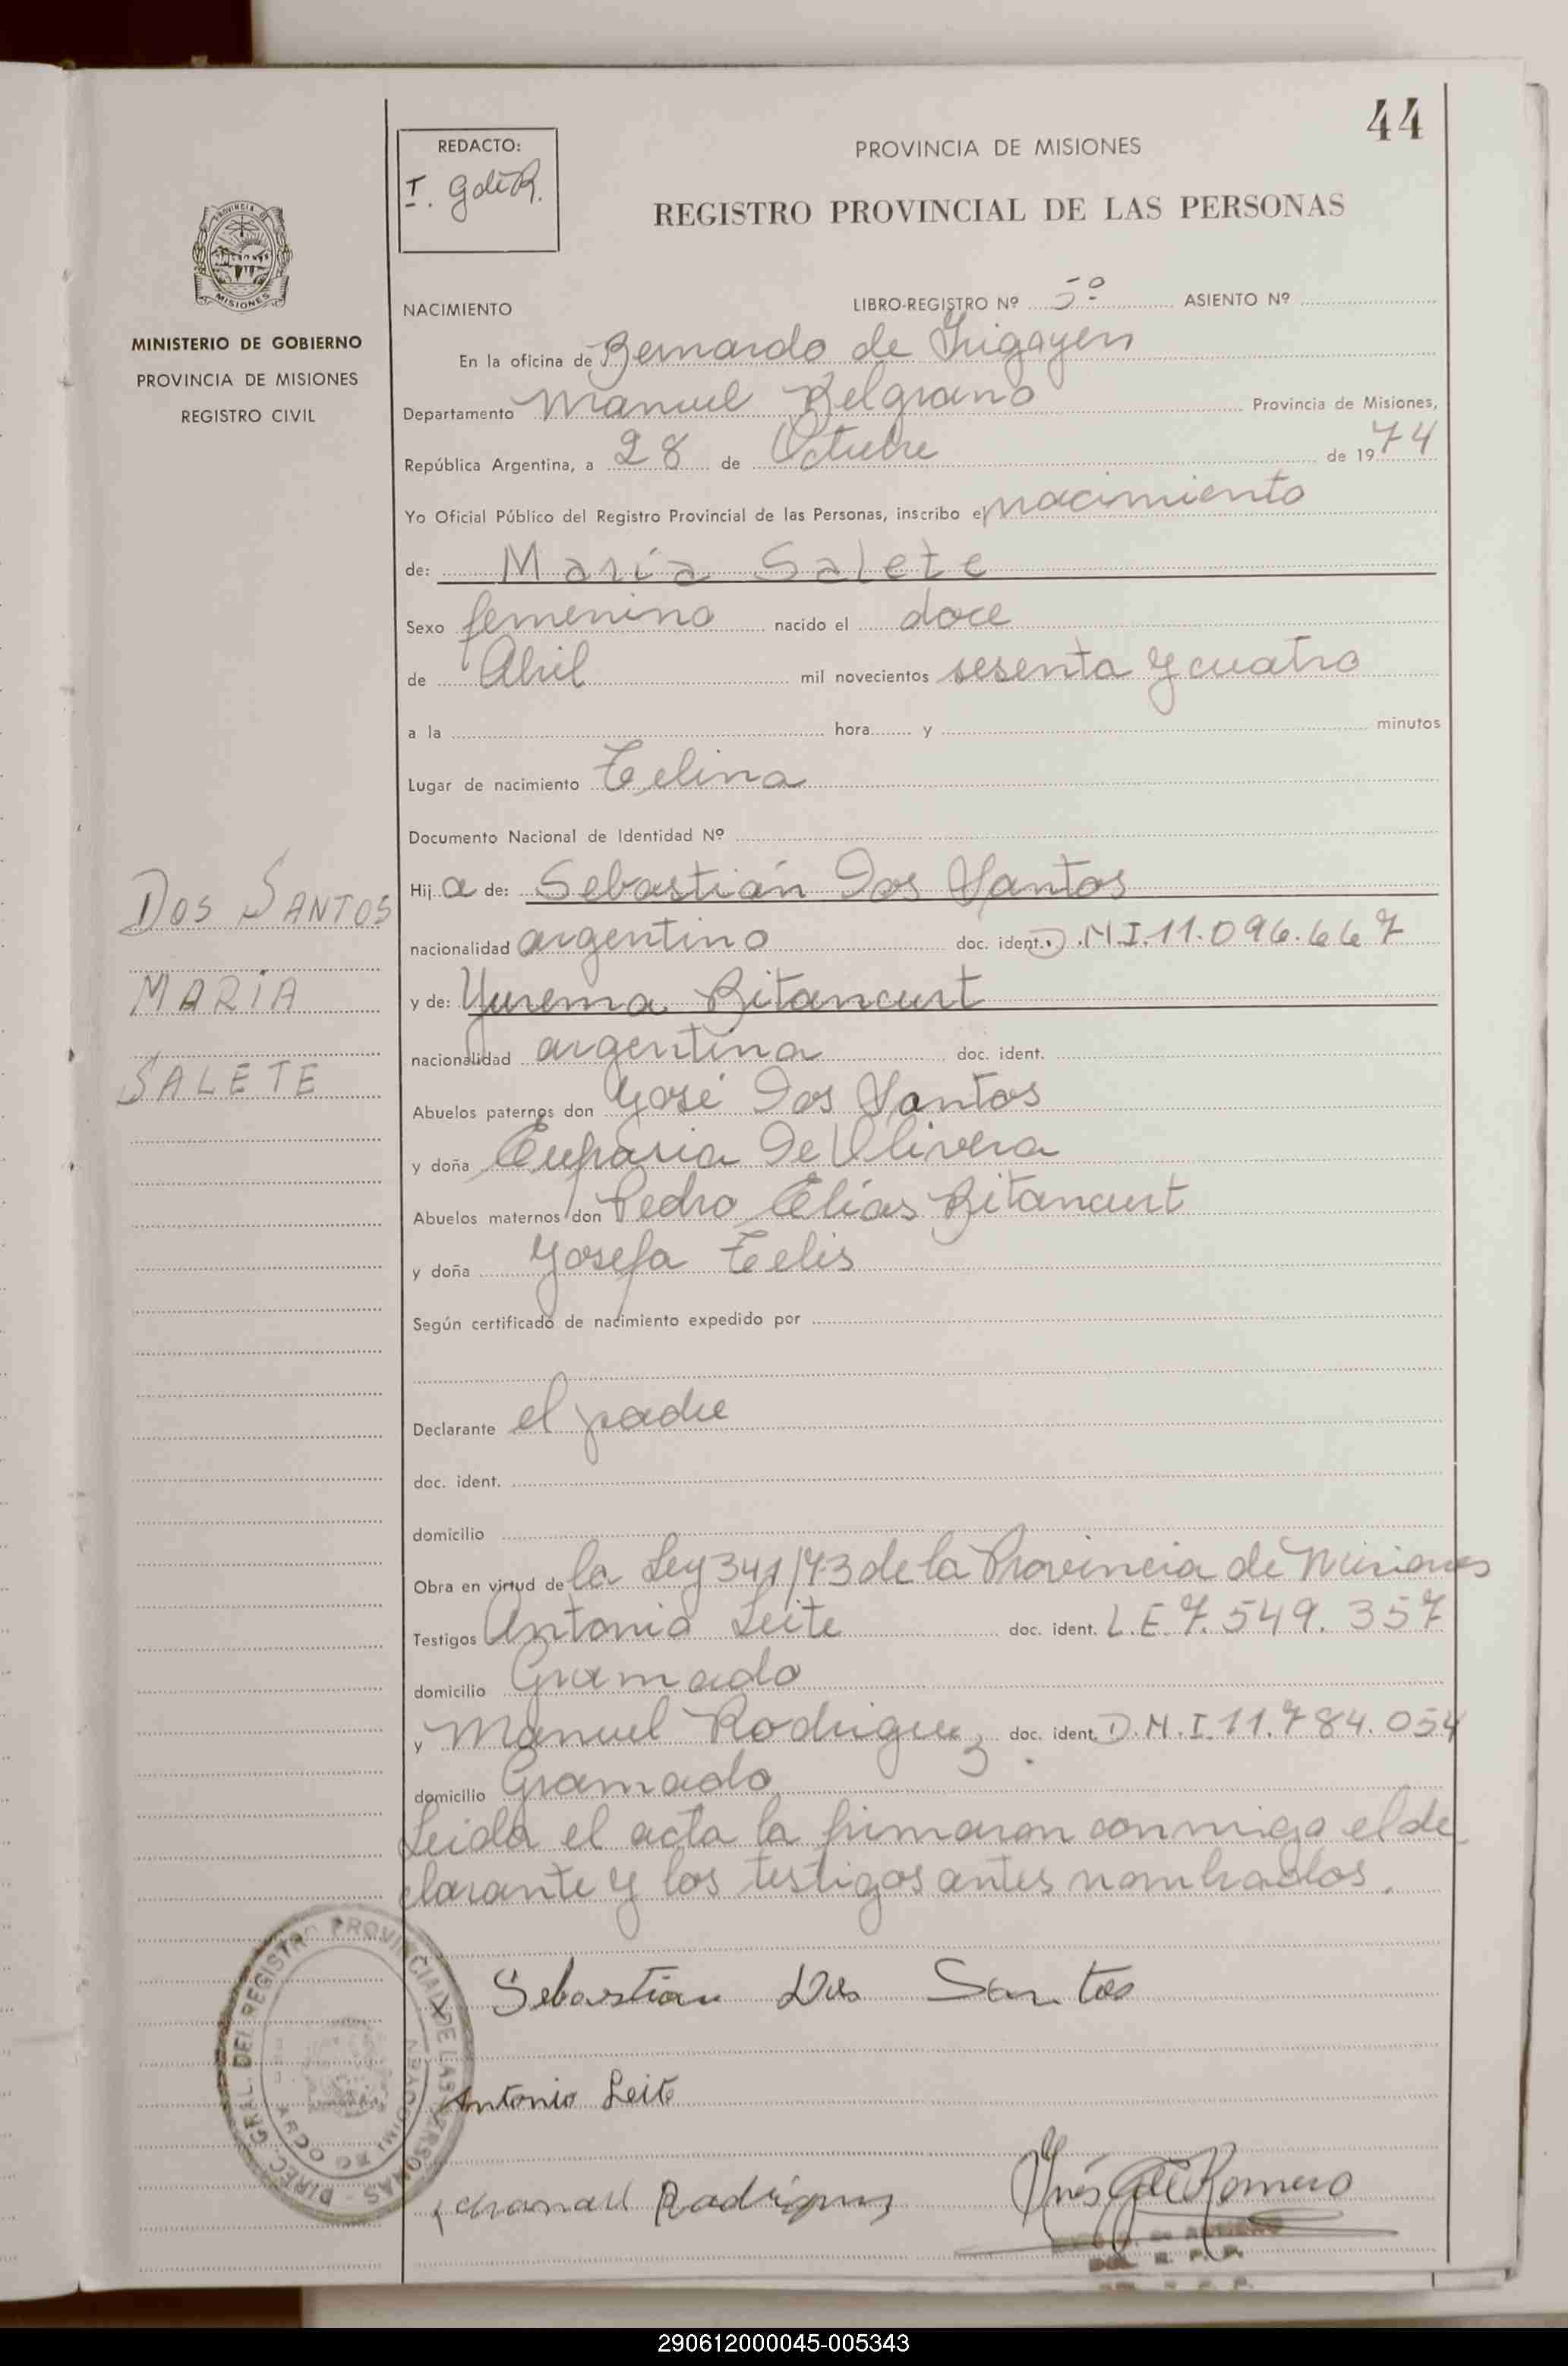 44
REDACTO:
I. G de R.
PROVINCIA DE MISIONES
REGISTRO PROVINCIAL DE LAS PERSONAS
PROVINCIA DE
MISIONES
MINISTERIO DE GOBIERNO
PROVINCIA DE MISIONES
REGISTRO CIVIL
NACIMIENTO LIBRO-REGISTRO Nº 5º ASIENTO Nº
En la oficina de Bernardo de Irigoyen
Departamento Manuel Belgrano Provincia de Misiones,
República Argentina, a 28 de Octubre de 1974
Yo Oficial Público del Registro Provincial de las Personas, inscribo el nacimiento
de: María Salete
Sexo femenino nacido el doce
de Abril mil novecientos sesenta y cuatro
a la hora y minutos
Lugar de nacimiento Celina
Documento Nacional de Identidad Nº
DOS SANTOS
MARÍA
SALETE
Hija de: Sebastián Dos Santos
nacionalidad argentino doc. ident. D.N.I. 11.096.667
y de: Yurema Bitancurt
nacionalidad argentina doc. ident.
Abuelos paternos don José Dos Santos
y doña Eufrasia De Olivera
Abuelos maternos don Pedro Elías Bitancurt
y doña Josefa Telis
Según certificado de nacimiento expedido por
Declarante el padre
doc. ident.
domicilio
Obra en virtud de la Ley 341/73 de la Provincia de Misiones
Testigos Antonio Leite doc. ident. L.E. 7.549.357
domicilio Gramado
y Manuel Rodriguez doc. ident. D.N.I. 11.784.054
domicilio Gramado
Leida el acta la firmaron conmigo el de
clarante y los testigos antes nombrados.
DIREC. GRAL. DEL REGISTRO PROVINCIAL DE LAS PERSONAS
X Sebastian Dos Santos
Antonio Leite
Manuel Rodriguez
Inés G de Romero
290612000045-005343